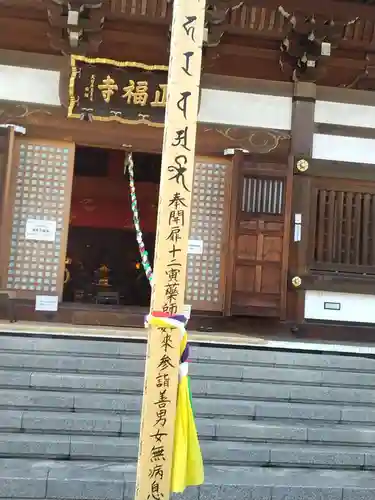 正福寺
奉開扉十二寅薬師如来参詣善男女無病息